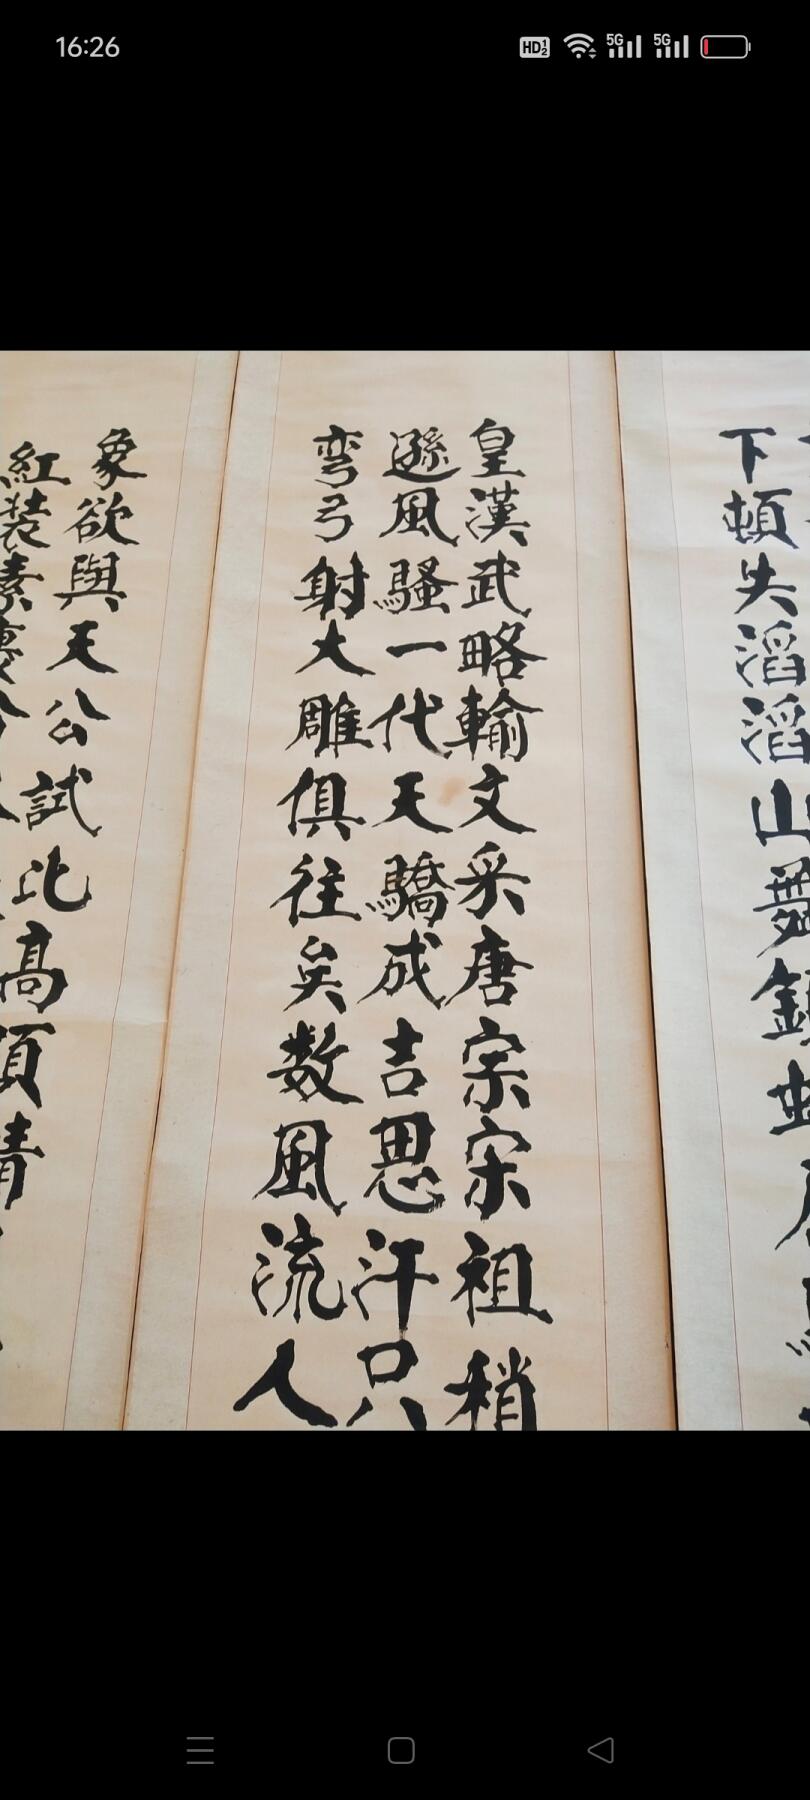 16:26
HD 1 2 5G 5G
下頓失滔滔山舞銀
皇漢武略輸文采唐宗宋祖稍
遜風騷一代天驕成吉思汗只
弯弓射大雕俱往矣数風流人
象欲與天公試比高須晴
紅装素裹